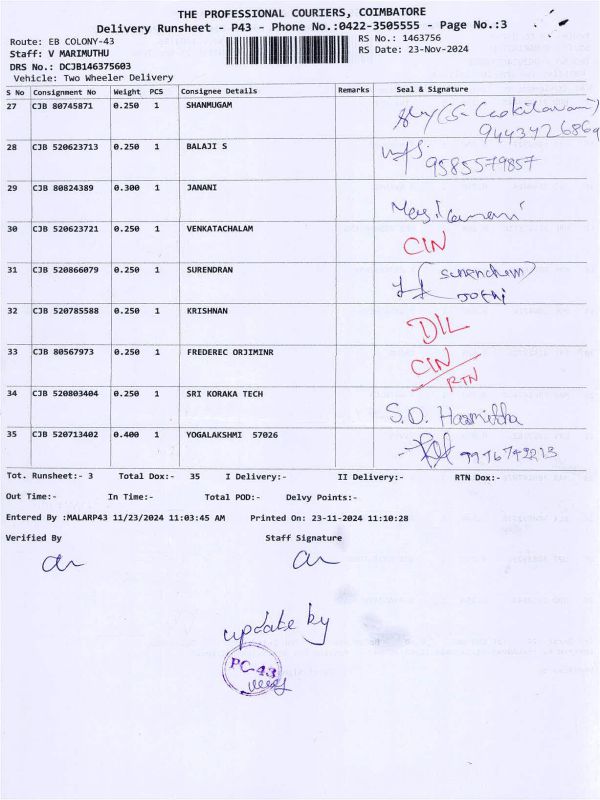 THE PROFESSIONAL COURIERS, COIMBATORE
Delivery Runsheet - P43 - Phone No.:0422-3505555 - Page No.:3
Route: EB COLONY-43 RS No.: 1463756
Staff: V MARIMUTHU RS Date: 23-Nov-2024
DRS No.: DCJB146375603
Vehicle: Two Wheeler Delivery
S No Consignment No Weight PCS Consignee Details Remarks Seal & Signature
27 CJB 80745871 0.250 1 SHANMUGAM
9443426869
28 CJB 520623713 0.250 1 BALAJI S
9585579857
29 CJB 80824389 0.300 1 JANANI
30 CJB 520623721 0.250 1 VENKATACHALAM CIN
31 CJB 520866079 0.250 1 SURENDRAN
Jothi
32 CJB 520785588 0.250 1 KRISHNAN DIL
33 CJB 80567973 0.250 1 FREDEREC ORJIMINR CIN
RTN
34 CJB 520803404 0.250 1 SRI KORAKA TECH S.D. Hasmitha
35 CJB 520713402 0.400 1 YOGALAKSHMI 57026
Tot. Runsheet:- 3 Total Dox:- 35 I Delivery:- II Delivery:- RTN Dox:-
Out Time:- In Time:- Total POD:- Delvy Points:-
Entered By :MALARP43 11/23/2024 11:03:45 AM Printed On: 23-11-2024 11:10:28
Verified By Staff Signature
update by
PC-43